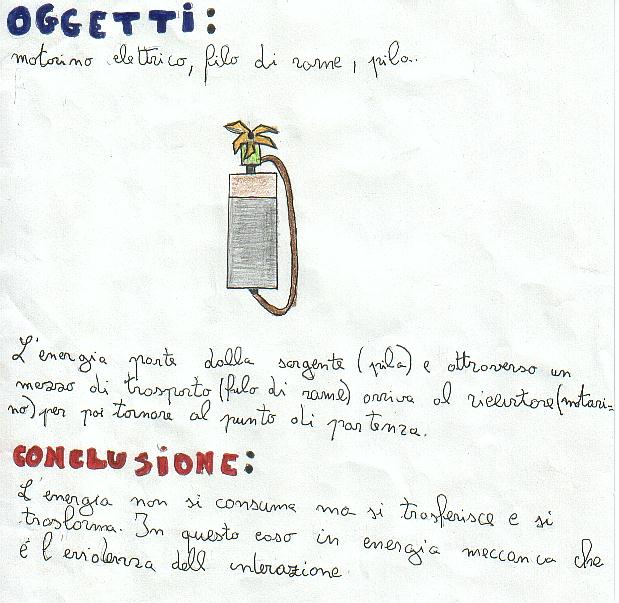 OGGETTi:
motorino elettrico, filo di rame, pila..
L'energia parte dalla sorgente (pila) e attraverso un
mezzo di trasporto (filo di rame) arriva al ricevitore (motori-
no) per poi tornare al punto di partenza.
CONCLUSiONE:
L'energia non si consuma ma si trasferisce e si
trasforma. In questo caso in energia meccanica che
é l'evidenza dell interazione.